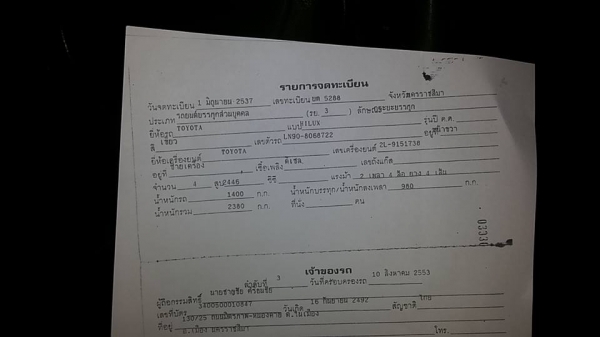 รายการจดทะเบียน
วันจดทะเบียน 1 มิถุนายน 2537 เลขทะเบียน 5288 จังหวัด นครราชสีมา
ประเภท รถยนต์บรรทุกส่วนบุคคล (รย. 3 ) ลักษณะ กระบะบรรทุก
ยี่ห้อรถ TOYOTA แบบ HILUX รุ่นปี ค.ศ.
สี เขียว เลขตัวรถ LN90-6068722 อยู่ที่
ยี่ห้อเครื่องยนต์ TOYOTA เลขเครื่องยนต์ 2L-9151738
อยู่ที่ เชื้อเพลิง ดีเซล เลขถังแก๊ส
จำนวน 4 สูบ 2446 ซีซี แรงม้า 2 เพลา 4 ล้อ ยาง 4 เส้น
น้ำหนักรถ 1400 ก.ก. น้ำหนักบรรทุก/น้ำหนักลงเพลา 980 ก.ก.
น้ำหนักรวม 2380 ก.ก. ที่นั่ง คน
เจ้าของรถ
ลำดับที่ 3 วันที่ครอบครองรถ 10 สิงหาคม 2553
ผู้ถือกรรมสิทธิ์
เลขที่บัตร วันเกิด 16 กันยายน 2492 สัญชาติ ไทย
ที่อยู่
อ.เมือง นครราชสีมา โทร.